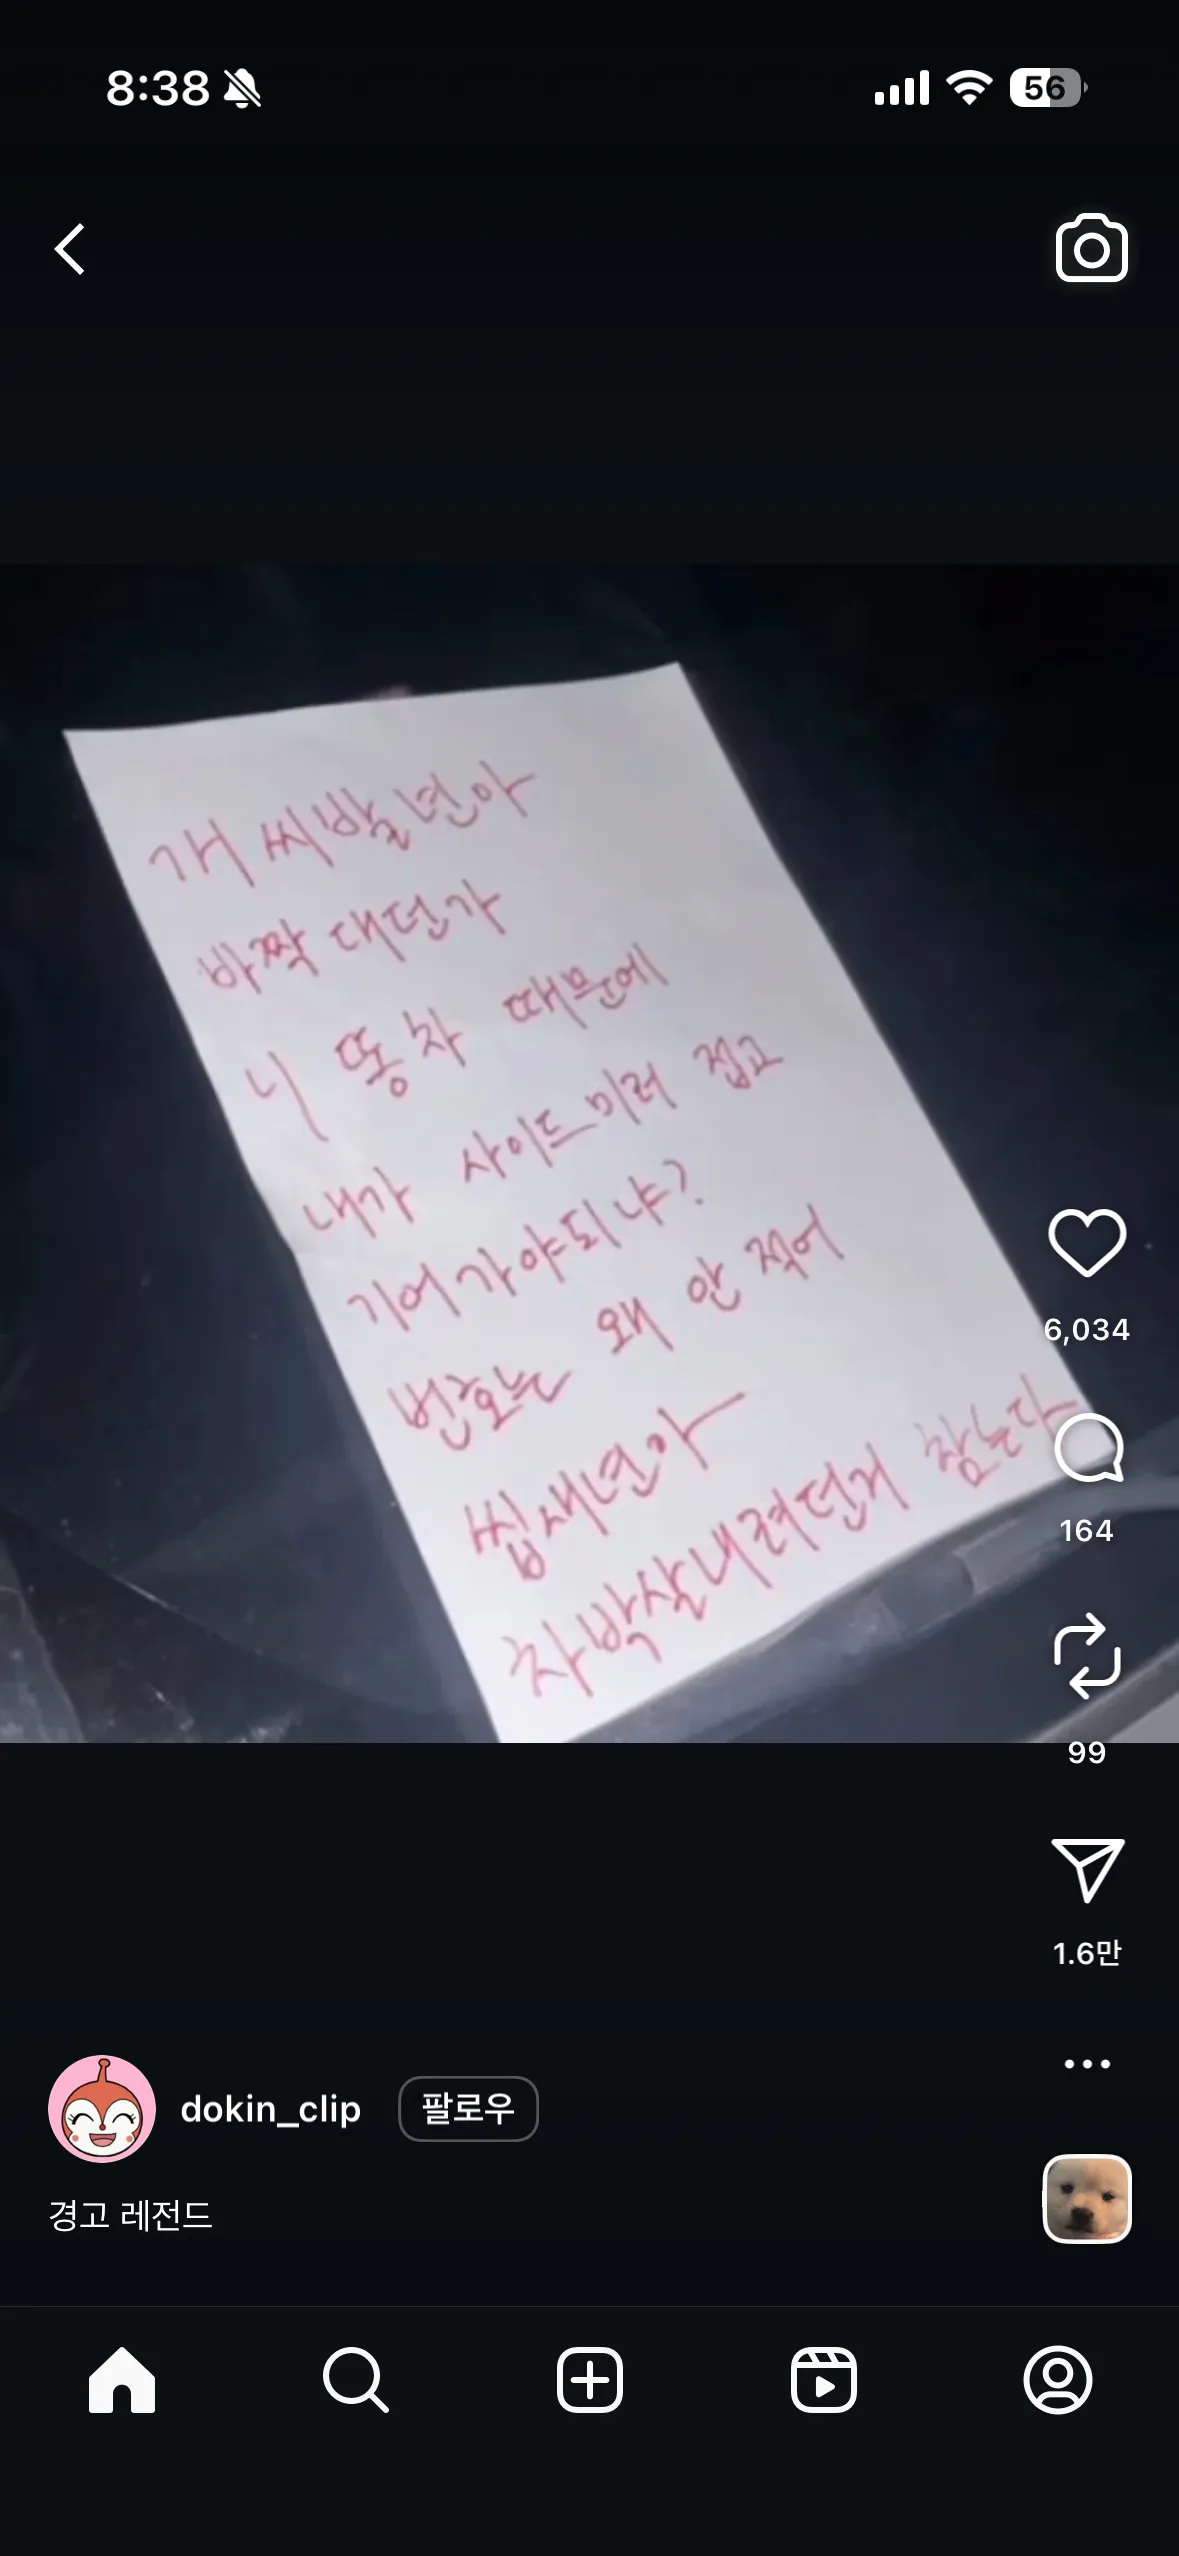 8:38
56
개 씨발년아
바짝 대던가
니 똥차 때문에
내가 사이드미러 접고
기어가야되냐?
번호는 왜 안 적어
씹새년아
차박살내려던거 참는다
6,034
164
99
1.6만
dokin_clip 팔로우
경고 레전드